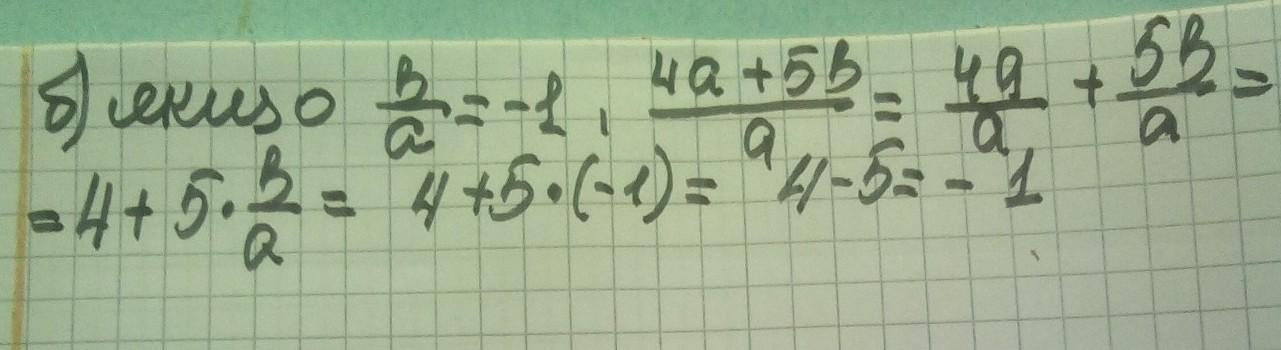 б) якщо b/a = -1, (4a + 5b)/a = 4a/a + 5b/a =
= 4 + 5 · b/a = 4 + 5 · (-1) = 4 - 5 = - 1